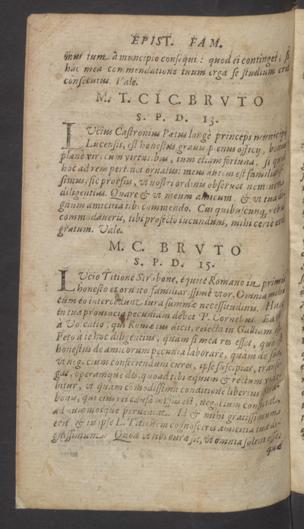 EPIST. FAM.
tum à municipio consequi: quod ei continget, si
hac mea commendatione tuum erga se studium erit
consecutus. Vale.
M. T. CIC. BRVTO
S. P. D. 13.
LVcius Castronius Pætus longè princeps municipij
Lucensis, est honestus, gravis, plenus officij, bonus
planè vir, cum virtutibus, tum etiam fortuna, si quid
hoc ad rem pertinet ornatus: meus autem est familiaris-
simus, sic prorsus, ut nostri ordinis observet neminem
diligentius. Quare & ut meum amicum, & ut tua di-
gnum amicitia tibi commendo. Cui quibuscunque rebus
commodaveris, tibi profectò iucundum, mihi certè erit
gratum. Vale.
M. C. BRVTO
S. P. D. 15.
LVcio Titio Strabone, equite Romano in primis
honesto et ornato familiarissimè utor. Omnia mihi
cum eo intercedunt iura summæ necessitudinis. Huic
in tua provincia pecuniam debet P. Cornelius. Ea res
à Volcatio, qui Romæ ius dicit, reiecta in Galliam est.
Peto à te hoc diligentius, quàm si mea res esset, quo est
honestius de amicorum pecunia laborare, quàm de sua,
ut negotium conficiendum cures, ipse suscipias, transi-
gas, operamque des, quoad tibi æquum & rectum vide-
bitur, ut quàm commodissima conditione libertus Stra-
bonis, qui eius rei causa missus est, negotium conficiat,
ad nummosque perveniat. Id & mihi gratissimum
erit, & tu ipse L. Titium cognosces amicitia tua di-
gnissimum. Quod ut tibi curæ sit, ut omnia solent esse
quæ